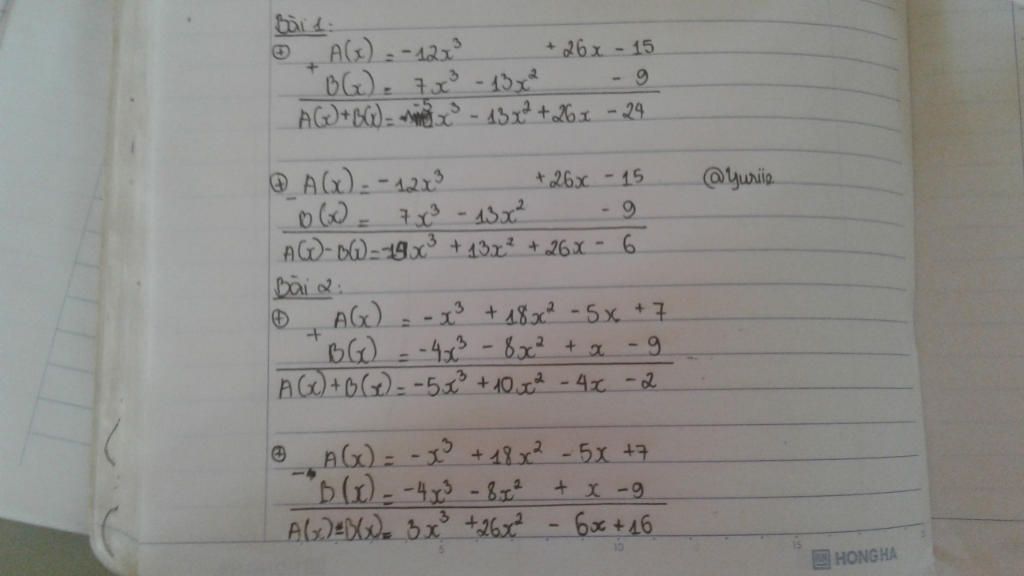 Bài 1:
⊕ A(x) = -12x³ + 26x - 15
+ B(x) = 7x³ - 13x² - 9
A(x)+B(x) = -5x³ - 13x² + 26x - 24
⊕ A(x) = -12x³ + 26x - 15 @Yuriiz
- B(x) = 7x³ - 13x² - 9
A(x)-B(x) = -19x³ + 13x² + 26x - 6
Bài 2:
⊕ A(x) = -x³ + 18x² - 5x + 7
+ B(x) = -4x³ - 8x² + x - 9
A(x)+B(x) = -5x³ + 10x² - 4x - 2
⊕ A(x) = -x³ + 18x² - 5x + 7
- B(x) = -4x³ - 8x² + x - 9
A(x)-B(x) = 3x³ + 26x² - 6x + 16
5 10 15
HONG HA